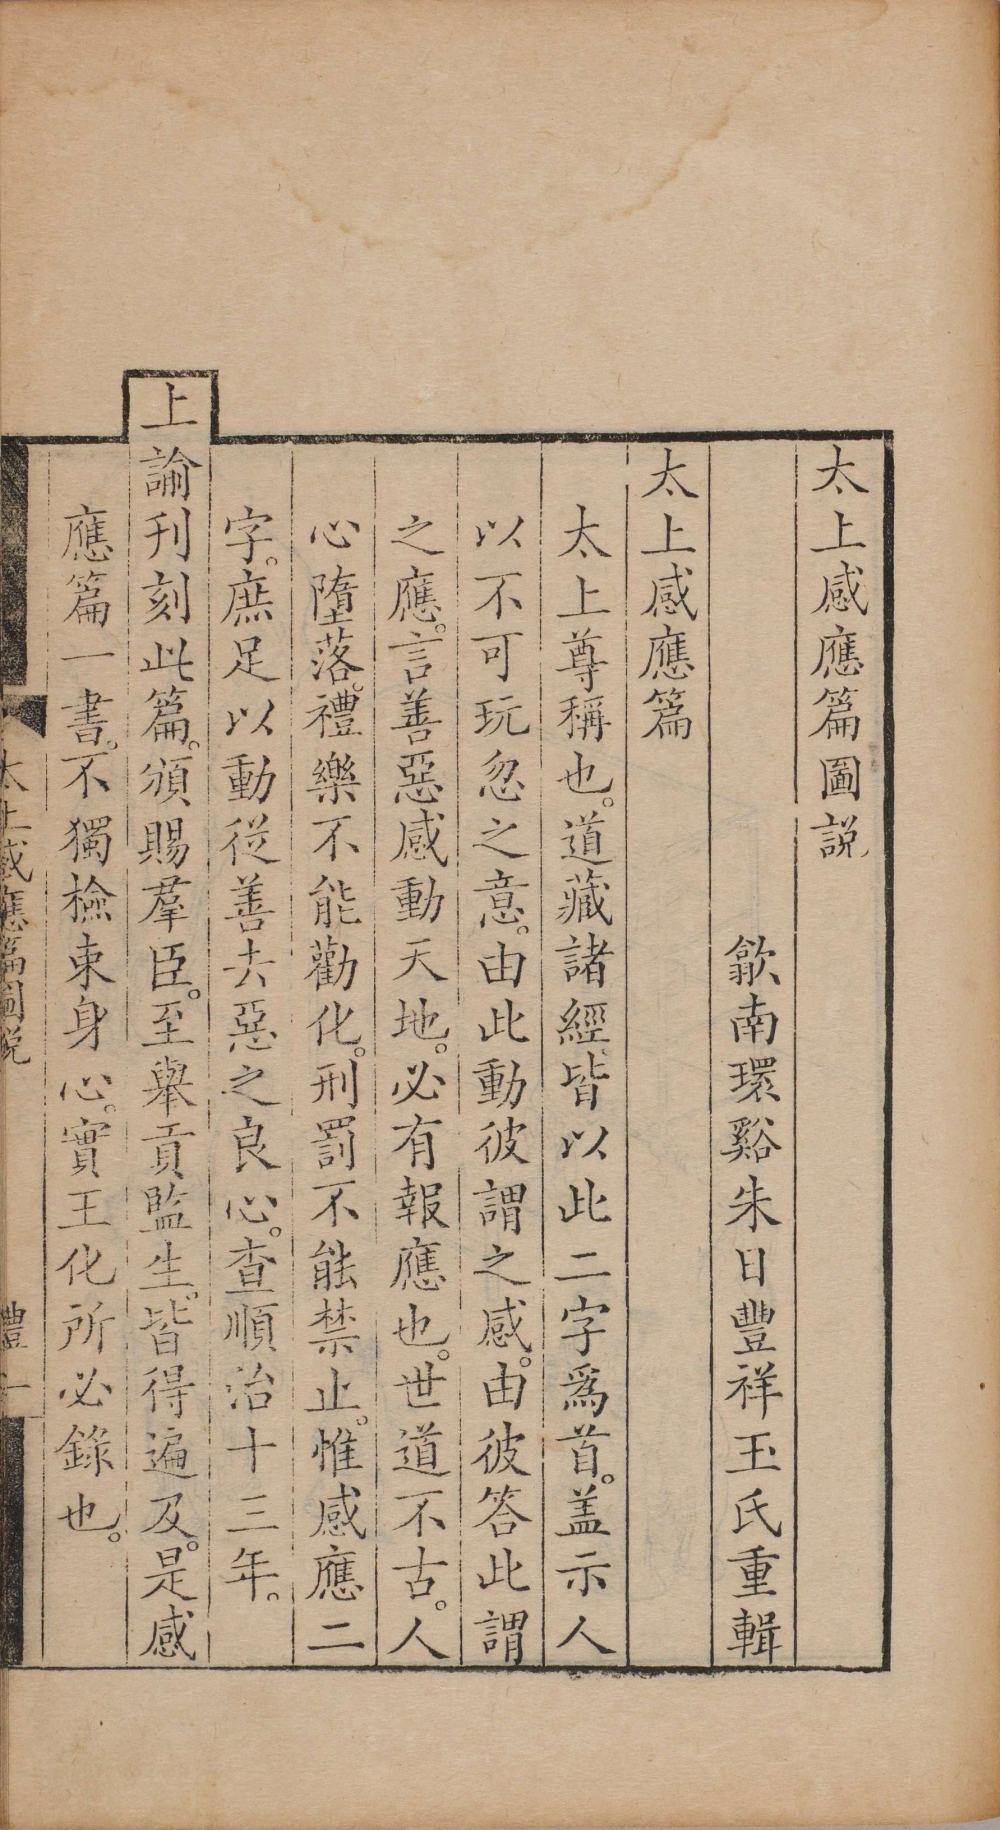 太上感應篇圖説
歙南環谿朱日豐祥玉氏重輯
太上感應篇
太上尊稱也。道藏諸經皆以此二字爲首。盖示人
以不可玩忽之意。由此動彼謂之感。由彼答此謂
之應。言善惡感動天地。必有報應也。世道不古。人
心墮落。禮樂不能勸化。刑罰不能禁止。惟感應二
字。庶足以動從善去惡之良心。查順治十三年。
上諭刊刻此篇。頒賜羣臣。至舉貢監生。皆得遍及。是感
應篇一書。不獨檢束身心。實王化所必錄也。
太上感應篇圖説 禮 一